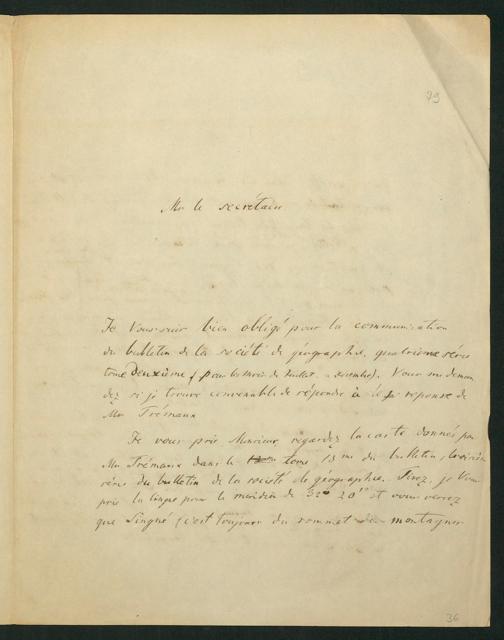 79
Mr le secrétaire
Je Vous suis bien obligé pour la communication
du bulletin de la société de géographie, quatrième série
tome Deuxième (pour les mois de Juillet - decembre). Vous me deman
dez si je trouve convenable de répondre à la reponse de
Mr Trémaux
Je vous prie Monsieur, regardez la carte donnée par
Mr Trémaux dans le tome 13 me du bulletin,
série du bulletin de la société de géographie. Tirez, je Vous
prie la ligne pour le meridien de 32° 20' et vous verrez
que Singué (c'est toujours du sommet des montagnes
36